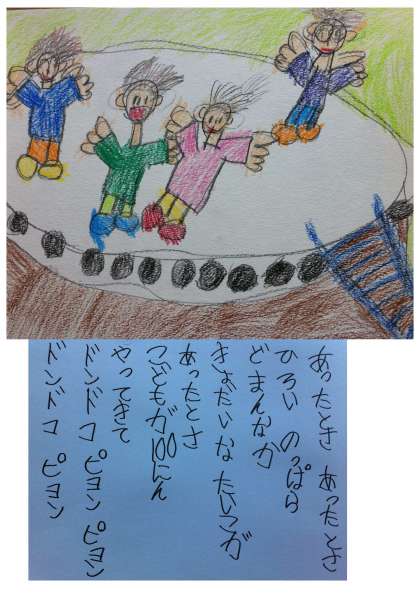 あったとさ あったとさ
ひろい のっぱら
どまんなか
きょだいな たいこが
あったとさ
こどもが100にん
やってきて
ドンドコ ピョンピョン
ドンドコ ピョン